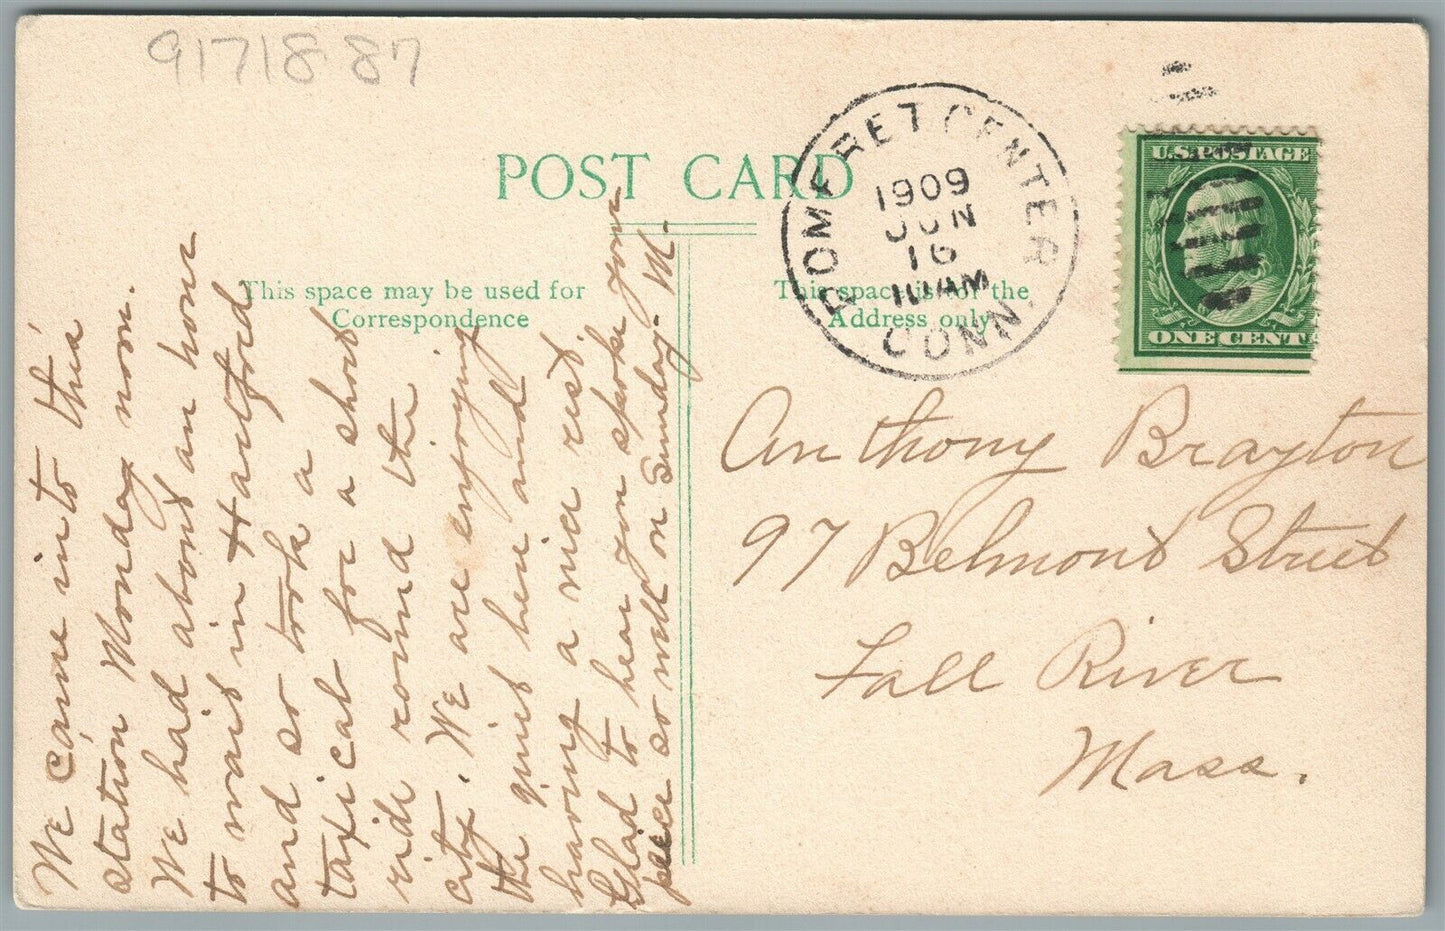 9171887
POST CARD
This space may be used for
Correspondence
This space is for the
Address only
POMFRET CENTER
1909
JUN
16
10 AM
CONN.
U.S. POSTAGE
ONE CENT
Anthony Brayton
97 Belmont Street
Fall River
Mass.
We came into this
station Monday noon.
We had about an hour
to wait in Hartford
and so took a
taxicab for a short
ride round the
city. We are enjoying
the quiet here and
having a nice rest.
Glad to hear you spoke your
piece so well on Sunday. M.